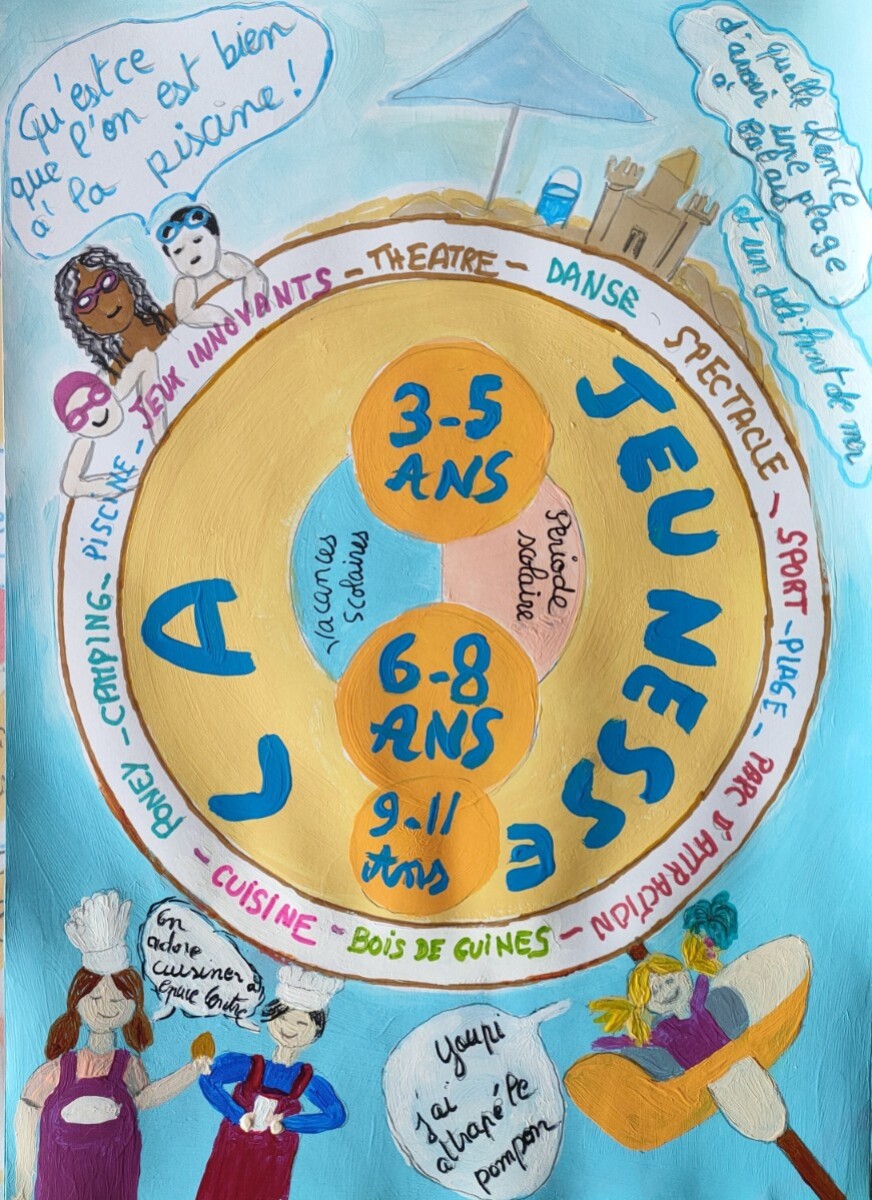 Qu'est ce
que l'on est bien
à la piscine !
quelle chance
d'avoir une plage
à Calais
et un joli front de mer
PISCINE - JEUX INNOVANTS - THEATRE - DANSE
SPECTACLE - SPORT - PLAGE - PARC D'ATTRACTION
- BOIS DE GUINES - CUISINE - PONEY - CAMPING -
LA
JEUNESSE
3-5
ANS
Vacances
scolaires
Période
scolaire
6-8
ANS
9-11
Ans
On
adore
cuisiner à
Youpi
j'ai
athrapé le
pompon